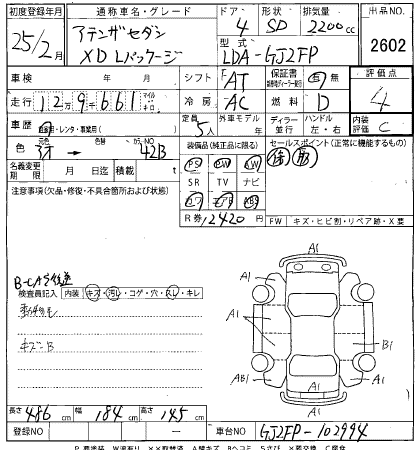 初度登録年月 通称車名・グレード ドア 形状 排気量 出品NO.
25/2月 アテンザセダン 4 SD 2200cc
XD Lパッケージ 型式 LDA-GJ2FP 2602
車検 年 月 シフト FAT 保証書 有 無 評価点
走行 12万9千661 マイル 冷房 AC 燃料 D 4
車歴 自家用・レンタ・事業用 定員 5人 外車モデル 年 ディーラー 並行 ハンドル 左・右 内装評価 C
色 → 色替 カラーNO. 42B 装備品(純正品に限る) セールスポイント(正常に機能するもの)
名義変更期限 月 日迄 積載 PS PW
注意事項(欠品・修復・不具合箇所および状態) SR TV ナビ
R券 12420 円 FW キズ・ヒビ割・リペア跡・X要
検査員記入 内装 キズ・汚レ・コゲ・穴・スレ・キレ
キズ-B
A1
A1 A1
A1 B1
AB1 A1
A1
長さ 486 cm 幅 184 cm 高さ 145 cm
登録NO 車台NO GJ2FP-102994